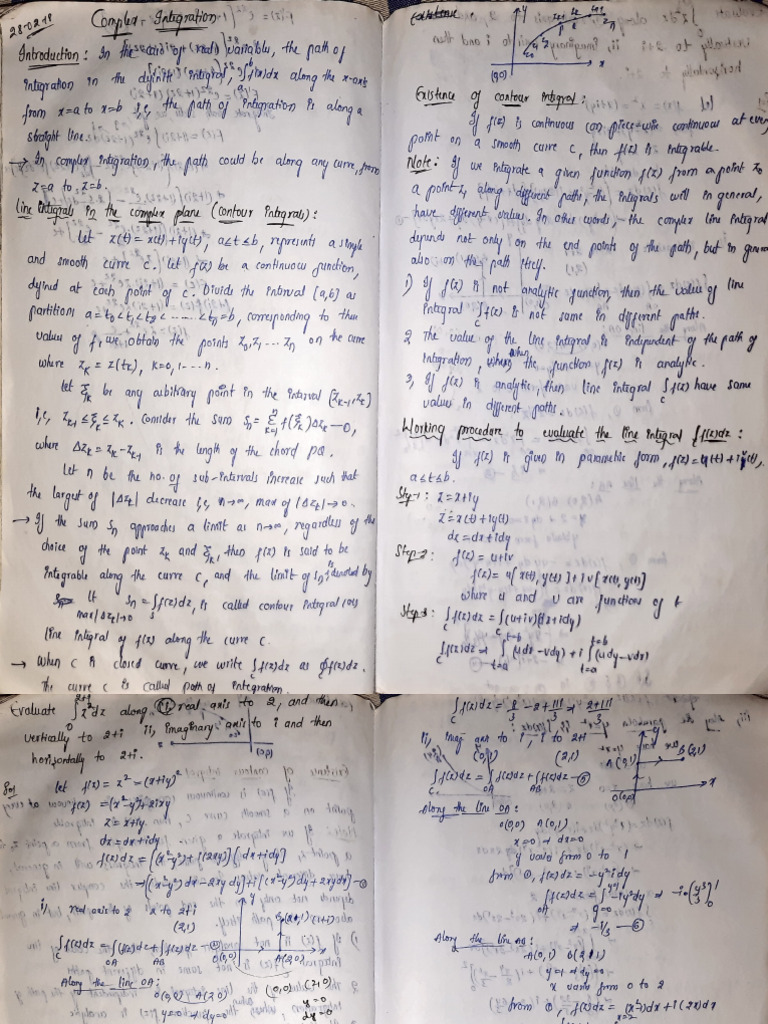 28.02.18
Complex Integration
Introduction: In the case of (real) variable, the path of
integration in the definite integral, ∫f(x)dx along the x-axis
from x=a to x=b i,e, the path of integration is along a
straight line.
→ In complex integration, the path could be along any curve, from
z=a to z=b.
Line integrals in the complex plane (contour integrals):
Let z(t) = x(t)+iy(t), a≤t≤b, represents a simple
and smooth curve C. Let f(z) be a continuous function,
defined at each point of C. Divide the interval [a,b] as
partition a=t₀<t₁<t₂<.......<tₙ=b, corresponding to these
values of t, we obtain the points z₀,z₁...zₙ on the curve
where zₖ = z(tₖ), k=0,1....n.
Let ξₖ be any arbitrary point in the interval [zₖ₋₁,zₖ]
i,e, zₖ₋₁ ≤ ξₖ ≤ zₖ. Consider the sum Sₙ = Σ f(ξₖ)Δzₖ —①,
where Δzₖ = zₖ-zₖ₋₁ is the length of the chord PQ.
Let n be the no. of sub-intervals increase such that
the largest of |Δzₖ| decrease i,e, n→∞, max of |Δzₖ|→0.
→ If the sum Sₙ approaches a limit as n→∞, regardless of the
choice of the point zₖ and ξₖ, then f(z) is said to be
integrable along the curve C, and the limit of Sₙ is denoted by
Lt Sₙ = ∫f(z)dz, is called contour integral (or)
max|Δzₖ|→0
line integral of f(z) along the curve C.
→ When C is closed curve, we write ∫f(z)dz as ∮f(z)dz.
The curve C is called path of integration.
y
x
(0,0)
Existence of contour integral:
If f(z) is continuous (or) piece-wise continuous at every
point on a smooth curve C, then f(z) is integrable.
Note: If we integrate a given function f(z) from a point z₀
a point z₁ along different paths, the integrals will in general,
have different values. In other words, the complex line integral
depends not only on the end points of the path, but in general
also on the path itself.
1) If f(z) is not analytic function, then the value of line
integral ∫f(z) is not same in different paths.
2 The value of the line integral is independent of the path of
integration, when the function f(z) is analytic.
3, If f(z) is analytic, then line integral ∫f(z) have same
values in different paths.
Working procedure to evaluate the line integral ∫f(z)dz:
If f(z) is given in parametric form, f(z)=u(t)+iv(t),
a≤t≤b.
Step-1: z=x+iy
z=x(t)+iy(t)
dz=dx+idy
Step-2: f(z) = u+iv
f(z) = u[x(t),y(t)]+iv[x(t),y(t)]
where u and v are functions of t
Step-3: ∫f(z)dz = ∫(u+iv)(dx+idy)
∫f(z)dz ⇒ ∫(udx-vdy)+i∫(udy-vdx)
Evaluate ∫z²dz along (i), real axis to 2, and then
vertically to 2+i ii, imaginary axis to i and then
horizontally to 2+i.
Sol
let f(z) = z² = (x+iy)²
f(z) = (x²-y²)+2ixy
z=x+iy
dz=dx+idy
f(z)dz = [(x²-y²)+i(2xy)][dx+idy]
⇒[(x²-y²)dx-2xydy]+i[(x²-y²)dy+2xydx]—①
i, real axis to 2 2 to 2+i
(2,1)
∫f(z)dz = ∫f(z)dz+∫f(z)dz ②
C OA AB
O(0,0) A(2,0)
Along the line OA:
O(0,0) A(2,0)
y=0 ⇒ dy=0
(0,0) (2,0)
y=0
dy=0
ii, imag axis to i, i to 2+i
(0,1) (2,1)
∫f(z)dz = ∫f(z)dz+∫f(z)dz—⑤
C OA AB
A(0,1) B(2,1)
O(0,0)
x
Along the line OA:
O(0,0) A(0,1)
x=0 ⇒ dx=0
y varies from 0 to 1
from ①, f(z)dz = -y²idy
⇒ -i/3 —⑥
Along the line AB:
A(0,1) B(2,1)
y=1 ⇒ dy=0
x varies from 0 to 2
from ①, f(z)dz = (x²-1)dx+i(2x)dx